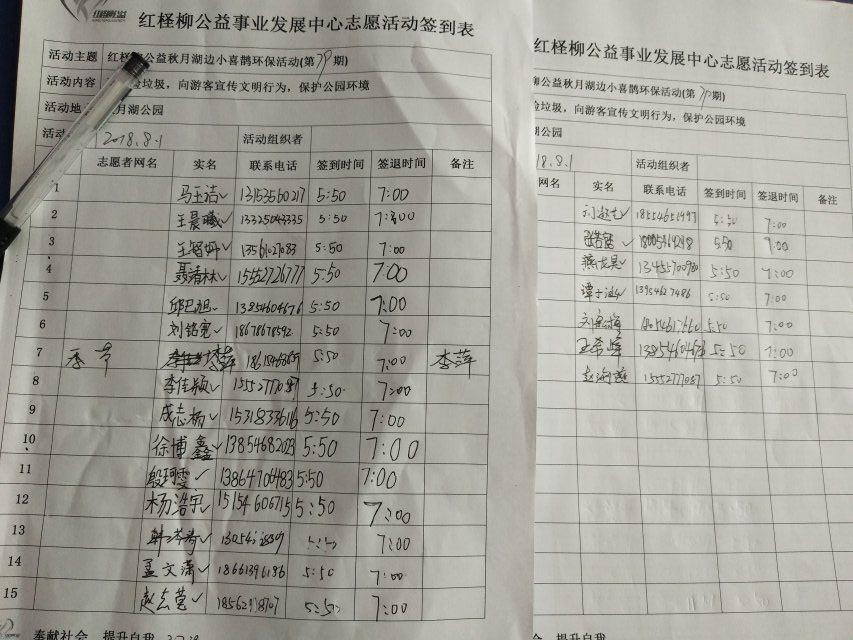 红柽柳公益事业发展中心志愿活动签到表
活动主题 红柽柳公益秋月湖边小喜鹊环保活动(第79期)
活动内容 垃圾，向游客宣传文明行为，保护公园环境
活动地 月湖公园
活动 2018.8.1 活动组织者
志愿者网名 实名 联系电话 签到时间 签退时间 备注
1 马玉洁 13153560217 5:50 7:00
2 王晨曦 5:50 7:00
3 5:50 7:00
4 聂清林 15552726777 5:50 7:00
5 邱巴旭 13854604676 5:50 7:00
6 刘铭宽 18678678592 5:50 7:00
7 李萍 5:50 7:00 李萍
8 李佳颖 15552777087 5:50 7:00
9 成志杨 15318336116 5:50 7:00
10 徐博鑫 13854682023 5:50 7:00
11 殷珂雯 13864706483 5:50 7:00
12 杨浩宇 15154606715 5:50 7:00
13 5:50 7:00
14 孟文潇 18661396186 5:50 7:00
15 5:50 7:00
奉献社会 提升自我
红柽柳公益事业发展中心志愿活动签到表
柳公益秋月湖边小喜鹊环保活动(第79期)
捡垃圾，向游客宣传文明行为，保护公园环境
湖公园
18.8.1 活动组织者
网名 实名 联系电话 签到时间 签退时间 备注
18554651497 5:50 7:00
5:50 7:00
13455700980 5:50 7:00
13954627486 5:50 7:00
5:50 7:00
13854604676 5:50 7:00
15552777087 5:50 7:00
会 提升自我